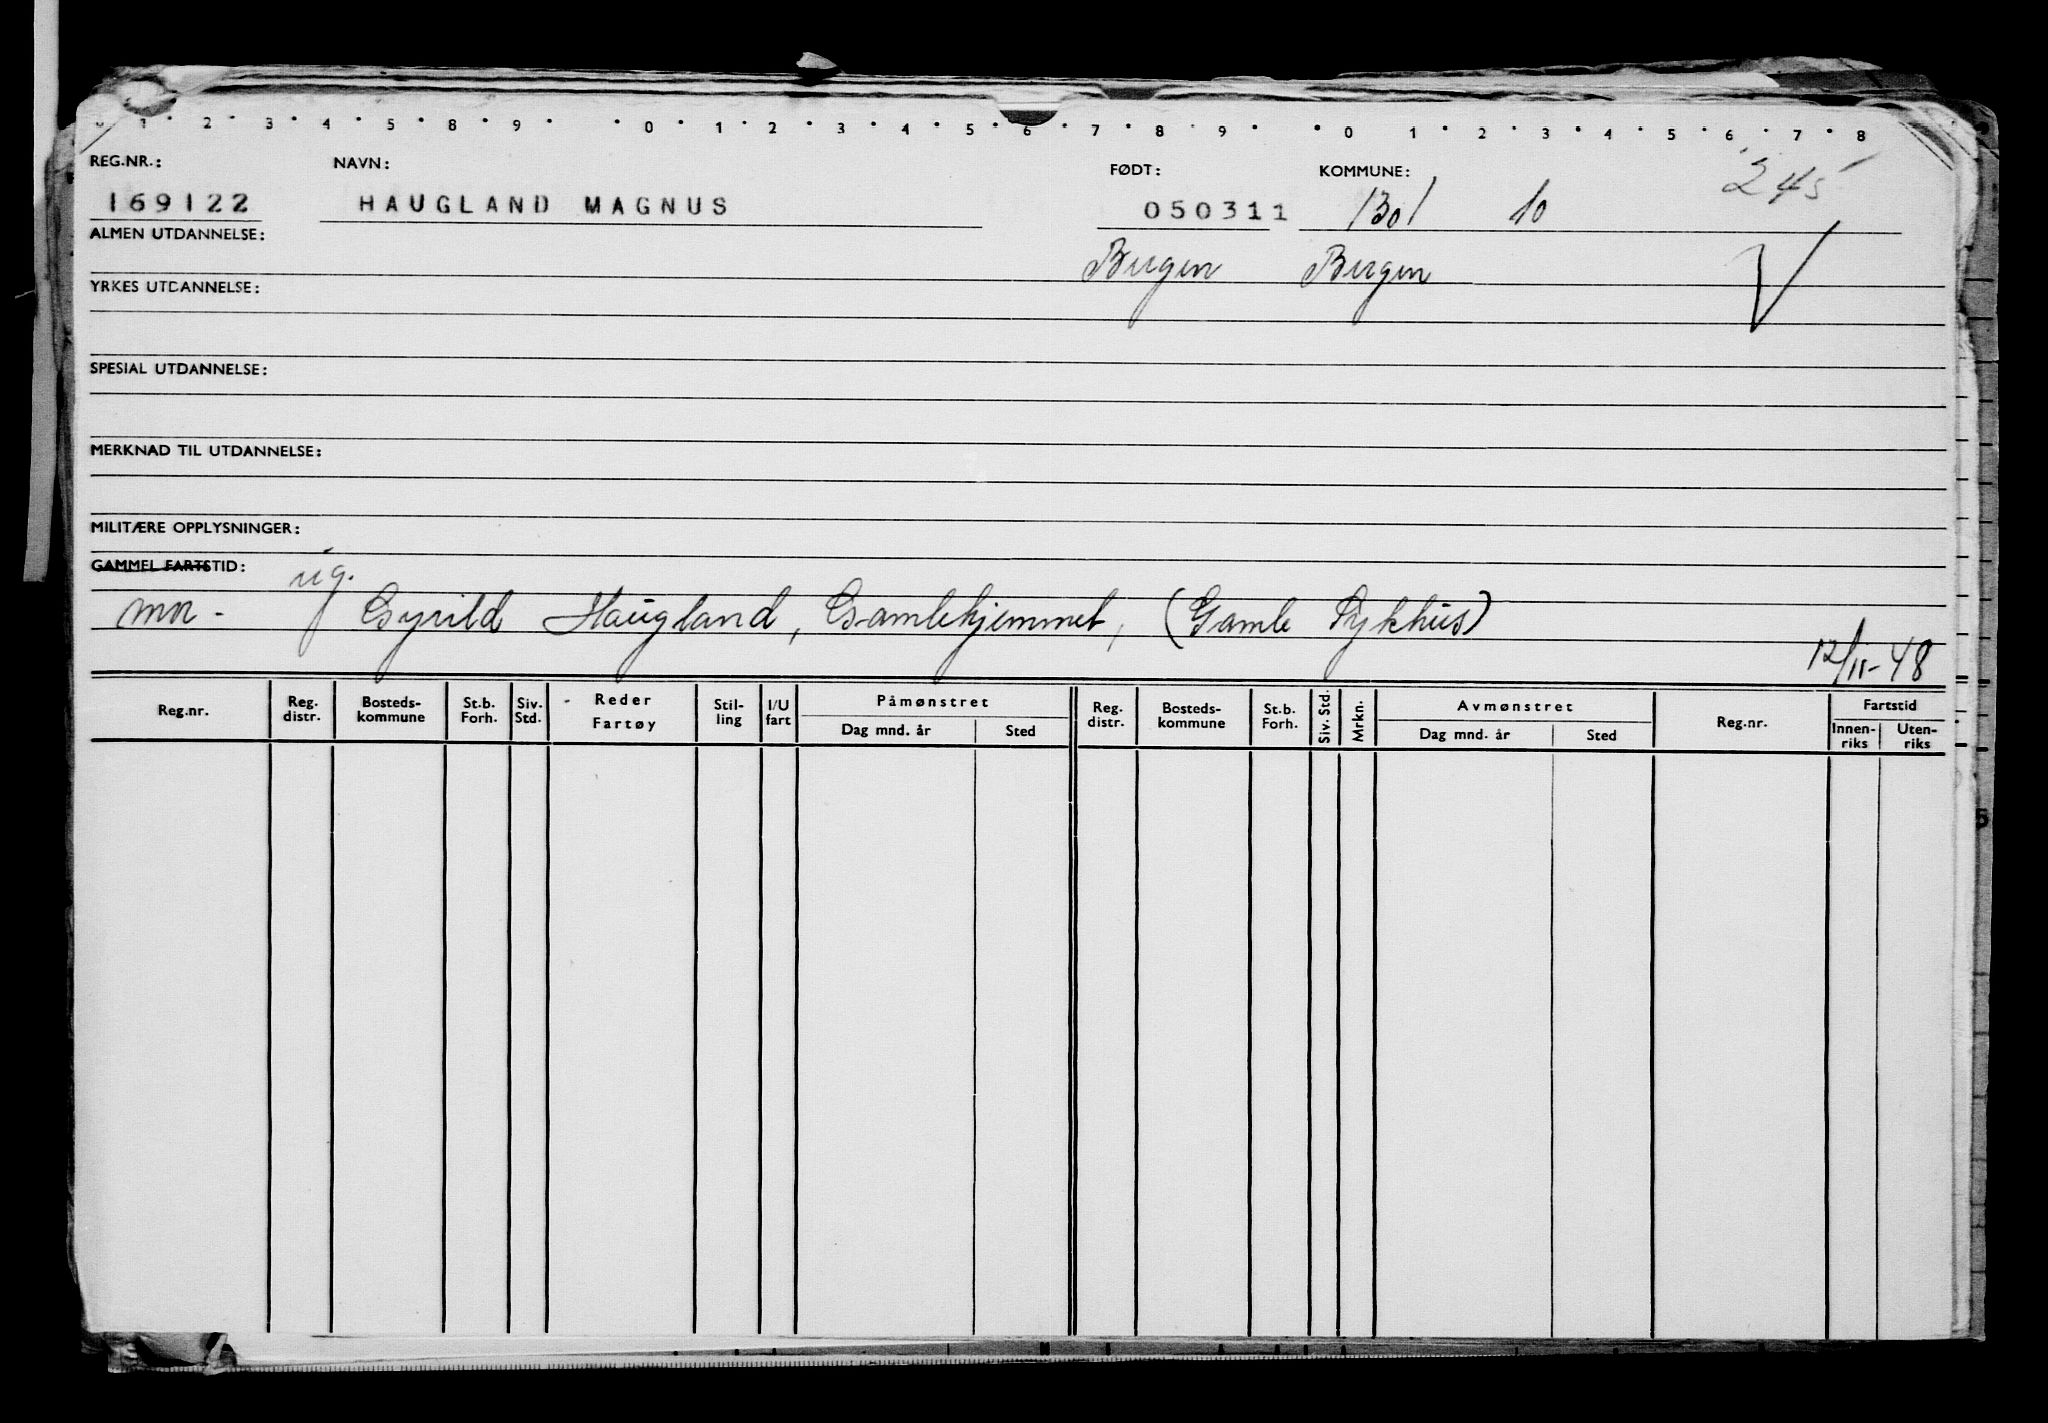 0 1 2 3 4 5 8 9 0 1 2 3 4 5 6 7 8 9 0 1 2 3 4 5 6 7 8
REG.NR.: NAVN: FØDT: KOMMUNE: 245
169122 HAUGLAND MAGNUS 050311 1301 10
ALMEN UTDANNELSE: Bergen Bergen
YRKES UTDANNELSE:
SPESIAL UTDANNELSE:
MERKNAD TIL UTDANNELSE:
MILITÆRE OPPLYSNINGER:
GAMMEL FARTSTID: ug.
mor - Gyrild Haugland, Gamlehjemmet, (Gamle Sykhus)
12/11-48
Reg.nr. Reg. distr. Bosteds-kommune St.b. Forh. Siv. Std. Reder Fartøy Stil-ling I/U fart Påmønstret Dag mnd. år Sted Reg. distr. Bosteds-kommune St.b. Forh. Siv. Std. Mrkn. Avmønstret Dag mnd. år Sted Reg.nr. Fartstid Innen-riks Uten-riks